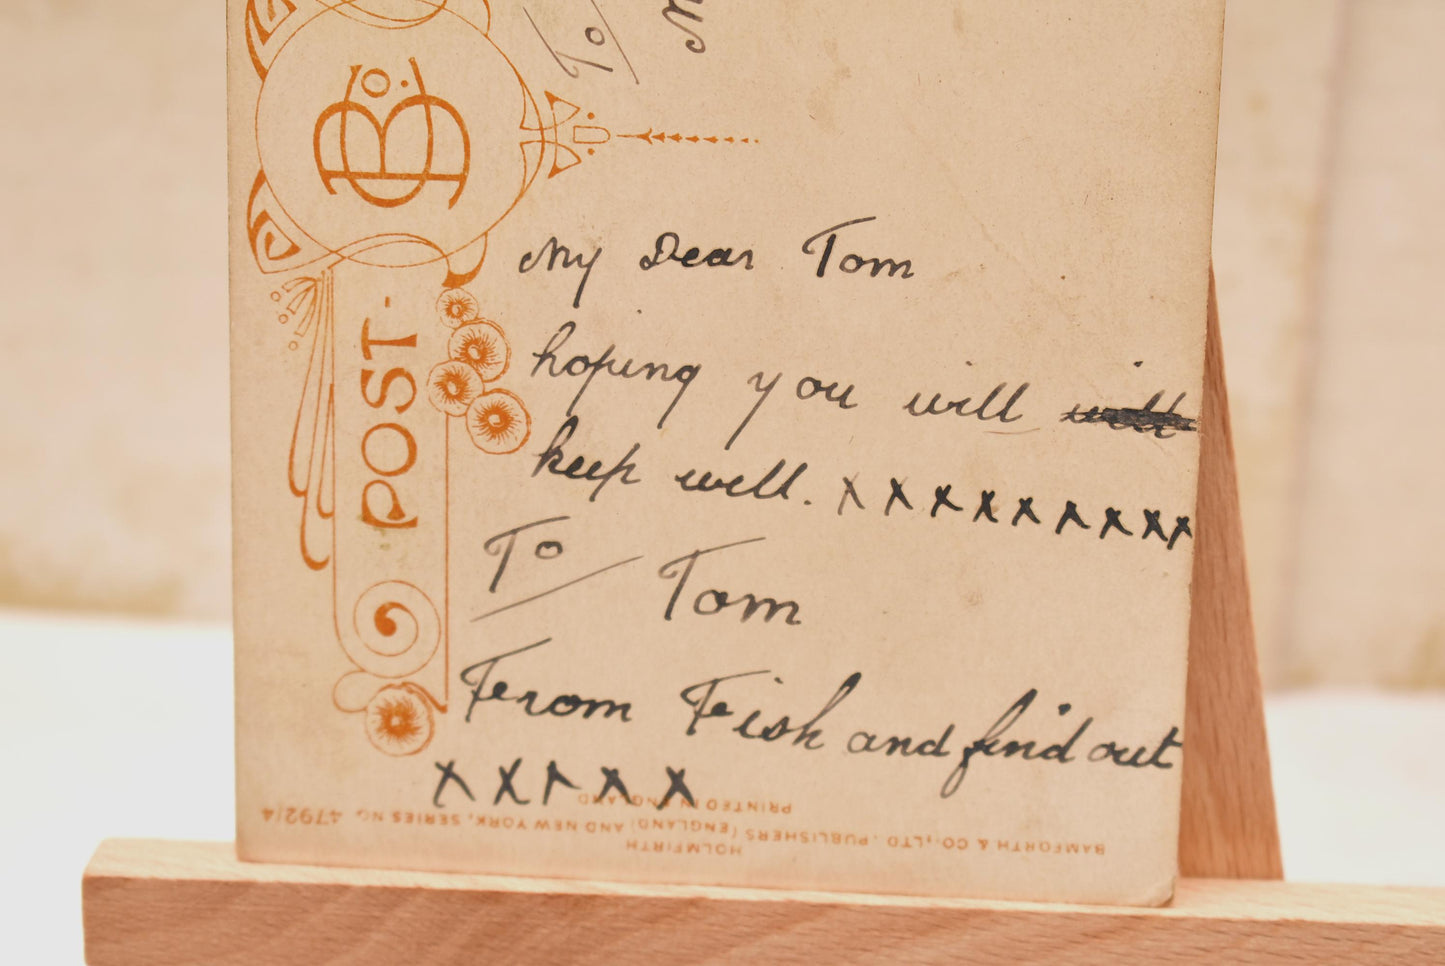 To
My Dear Tom
hoping you will will
keep well. x x x x x x x x x
To
Tom
From Fish and find out
x x x x x
B Co.
POST-
PRINTED IN ENGLAND
BAMFORTH & CO., LTD. PUBLISHERS (ENGLAND) AND NEW YORK, SERIES NO 4792/4
HOLMFIRTH